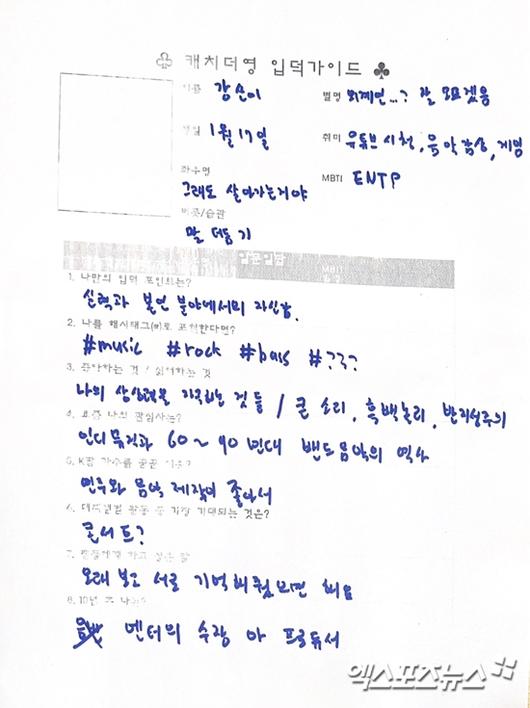 ♧ 캐치더영 입덕가이드 ♣
이름 강산이 별명 외계인...? 잘 모르겠음
생일 1월 17일 취미 유튜브 시청, 음악 감상, 게임
좌우명 MBTI ENTP
그래도 살아가는거야
버릇/습관
말 더듬기
일문일답
1. 나만의 입덕 포인트는?
실력과 본인 분야에서의 자신감.
2. 나를 해시태그(#)로 표현한다면?
#music #rock #bass #???
3. 좋아하는 것 / 싫어하는 것
나의 상상력을 자극하는 것들 / 큰 소리, 흑백논리, 반지성주의
4. 요즘 나의 관심사는?
인디 뮤직과 60~90년대 밴드 음악의 역사
5. K팝 가수를 꿈꾼 이유?
연주와 음악 제작이 좋아서
6. 데뷔앨범 활동 중 가장 기대되는 것은?
콘서트?
7. 팬들에게 하고 싶은 말
오래 보고 서로 기억해줬으면 해요
8. 10년 후 나는?
멘터의 수장 아 프로듀서
엑스포츠뉴스